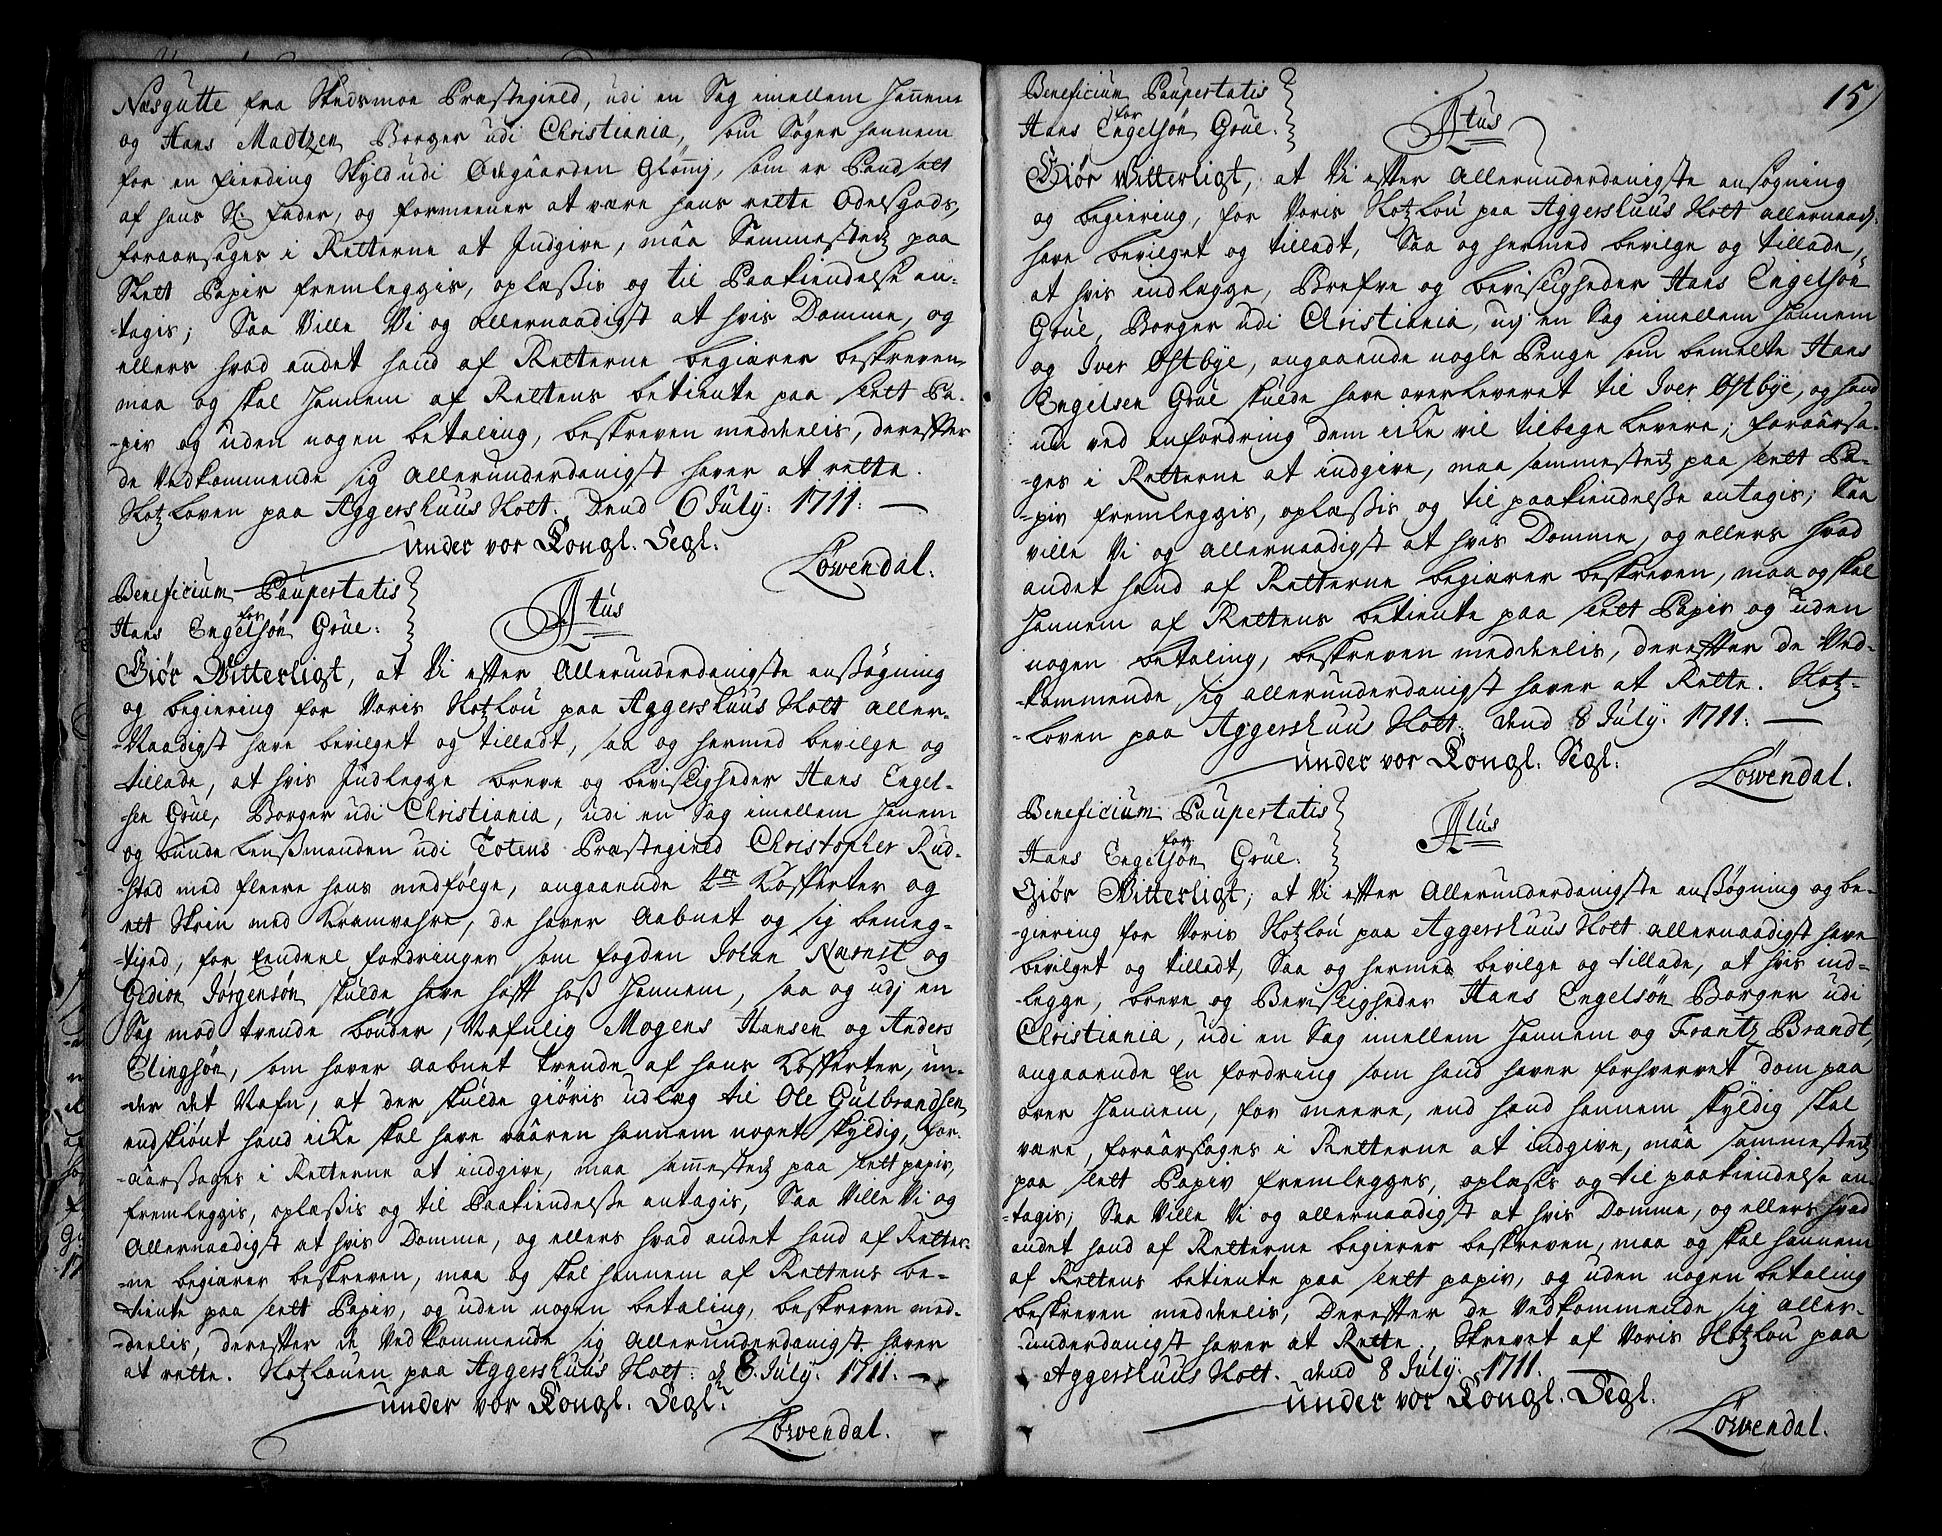 Næsgutte fra Skedsmoe Præstegield, udi en Sag imellem Hannem
og Hans Madtzen, Borger udi Christiania, som Søger hannem
for en fierding Skyld udi Ødegaarden, som er Pandsatt
af hans Sl. Fader, og formeener at være hans rette Odelsgods,
foraarsages i Retterne at Indgive, maa Sammestedz paa
Slett Papir fremleggis, oplæssis og til Paakiendelse an-
-tagis; Saa Ville Vi og allernaadigst at hvis Domme, og
ellers hvad andet hand af Retterne begiærer beskreven
maa og skal Hannem af Rettens betiente paa slett Pa-
-pir og uden nogen betaling, beskreven meddeelis, derefter
de Vedkommende sig Allerunderdanigst haver at rette.
Slotzloven paa Aggershuus Slott. Dend 6 July. 1711. —
under vor Kongl. Segl.
Løwendal.
Beneficium Paupertatis
for
Hans Engelsøn Grue.
Atus
Giør Witterligt, at Vi efter Allerunderdanigste anssøgning
og begiering for Voris Slotzlou paa Aggershuus Slott aller-
-Naadigst have bevilget og tilladt, saa og hermed bevilge og
tillade, at hvis Indlegge breve og bevisligheder Hans Engel-
-sen Grue, Borger udi Christiania, udi en Sag imellem Hanem
og bunde Lenssmanden udi Totens Præstegield Christopher Rud-
-stad med fleere hans medfølge, angaaende 4re Kofferter og
ett Skrin med Kramvahre, de haver Aabnet og sig bemeg-
-tiged, for Eendeel fordringer som fogden Joten Narnst og
Gedion Jørgensøn skulde have hafft hoss Hannem, saa og udj en
Sag mod trende bønder, Nafnlig Mogens Hansen og Anders
Elingsøn, som haver Aabnet trende af hans Kofferter, un-
-der det Nafn, at der skulde giøris udlæg til Ole Gulbrandsen,
endskiønt hand icke skal have vaaren hannem noget skyldig, for-
-aarssages i Retterne at indgive, maa sammestedz paa slett papir,
fremleggis, oplæssis og til Paakiendelsse antagis, Saa Ville Vi og
Allernaadigst at hvis Domme, og ellers hvad andet hand af Retter-
-ne begiærer beskreven, maa og skal hannem af Rettens be-
-tiente paa slett Papir, og uden nogen betaling, beskreven med-
-deelis, derefter de Vedkommende sig Allerunderdanigst haver
at rette. Slotzlouen paa Aggershuus Slott: d. 8. July. 1711. —
under vor Kongl. Segl.
Løwendal.
15
Beneficium Paupertatis
for
Hans Engelsøn Grue.
Atus
Giør Witterligt, at Vi efter Allerunderdanigste ansøgning
og begiering, for Voris Slotzlou paa Aggershuus Slott allernaadst
have bevilget og tilladt, Saa og hermed bevilge og tillade,
at hvis indlegge, Brefve og bevisligheder Hans Engelsøn
Grue, Borger udi Christiania, udj en Sag imellem Hannem
og Iver Østbye, angaaende nogle Penge som bemelte Hans
Engelsen Grue skulde have overleveret til Iver Østbye, og hand
nu ved anfordring dem icke vil tilbage levere; foraarsa-
-ges i Retterne at indgive, maa sammestedz paa slett Pa-
-pir fremleggis, oplæssis og til paakiendelsse antagis; Saa
ville Vi og allernaadigst at hvis Domme, og ellers hvad
andet hand af Retterne begiærer beskreven, maa og skal
Hannem af Rettens betiente paa slett Papir og uden
nogen betaling, beskreven meddeelis, derefter de Ved-
-kommende sig allerunderdanigst haver at Rette. Slotz-
-loven paa Aggershuus Slott. dend 8 July. 1711. —
under vor Kongl. Segl.
Løwendal.
Beneficium Paupertatis
for
Hans Engelsøn Grue.
Atus
Giør Witterligt; at Vi efter Allerunderdanigste anssøgning og be-
-giering for Voris Slotzlou paa Aggershuus Slott allernaadigst have
bevilget og tilladt, Saa og hermed bevilge og tillade, at hvis ind-
-legge, breve og Bevisligheder Hans Engelsøn Borger udi
Christiania, udi en Sag imellem Hannem og Frantz Brandt,
angaaende En fordring som hand haver forhvervet dom paa
over Hannem, for meere, end hand hannem skyldig skal
være, foraarsages i Retterne at indgive, maa sammestedz
paa slett Papir fremlegges, oplæsis og til paakiendelse an
-tagis; Saa Ville Vi og allernaadigst at hvis Domme, og ellers hvad
andet hand af Retterne begierer beskreven, maa og skal hannem
af Rettens betiente paa slett papir, og uden nogen betaling
beskreven meddeelis, Derefter de Vedkommende sig aller-
-underdanigst haver at Rette. Skrevet af Voris Slotzlou paa
Aggershuus Slott. dend 8 July. 1711.
under vor Kongl. Segl.
Løwendal.